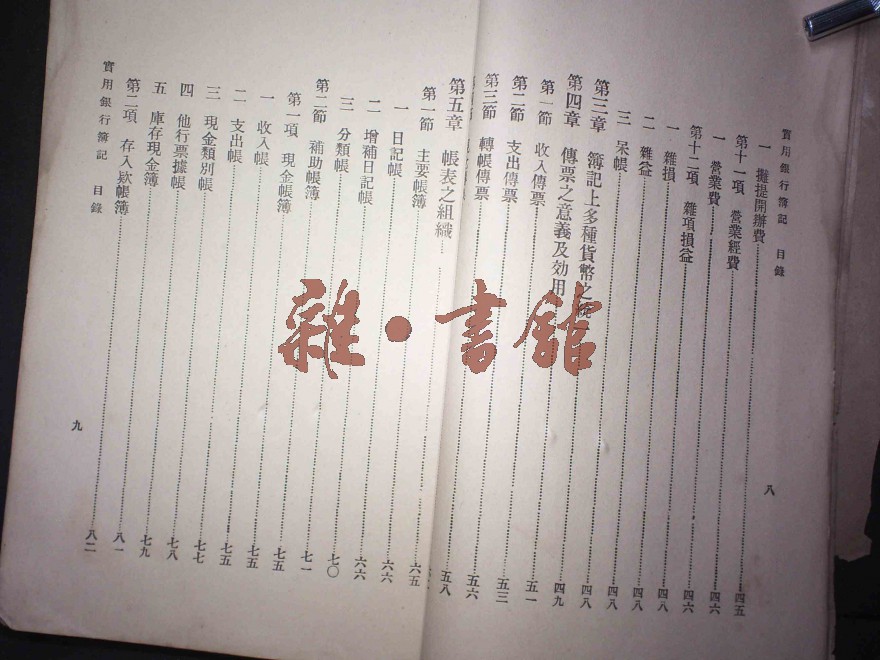 實用銀行簿記 目錄
一 攤提開辦費 四五
第十一項 營業經費 四六
一 營業費 四六
第十二項 雜項損益 四六
一 雜損 四八
二 雜益 四八
三 呆帳 四八
第三章 簿記上多種貨幣之 四八
第四章 傳票之意義及効用 四九
第一節 收入傳票 五一
第二節 支出傳票 五三
第三節 轉帳傳票 五六
八
第五章 帳表之組織 五八
第一節 主要帳簿 六五
一 日記帳 六六
二 增補日記帳 六六
三 分類帳 七〇
第二節 補助帳簿 七一
第一項 現金帳簿 七五
一 收入帳 七五
二 支出帳 七五
三 現金類別帳 七七
四 他行票據帳 七八
五 庫存現金簿 七九
第二項 存入欵帳簿 八一
八二
實用銀行簿記 目錄
九
雜·書館